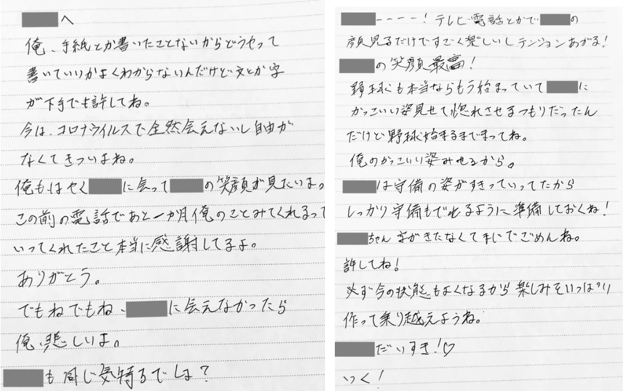 へ
俺、手紙とか書いたことないからどうやって
書いていいかよくわからないんだけど文とか字
が下手でも許してね。
今は、コロナウイルスで全然会えないし自由が
なくてきついよね。
俺もはやく に会って の笑顔が見たいよ。
この前の電話であと一か月俺のことみてくれるって
いってくれたこと本当に感謝してるよ。
ありがとう。
でもねでもね、 に会えなかったら
俺、悲しいよ。
も同じ気持ちでしょ?
ーーーー!テレビ電話とかで の
顔見るだけですごく楽しいしテンションあがる!
の笑顔最高!
野球も本当ならもう始まっていて に
かっこいい姿見せて惚れさせるつもりだったん
だけど野球始まるまでまってね。
俺のかっこいい姿みせるから。
は守備の姿がすきっていってたから
しっかり守備もでれるように準備しておくね!
ちゃん字がきたなくてまじでごめんね。
許してね!
必ず今の状態もよくなるから楽しみをいっぱい
作って乗り越えようね。
だいすき!♡
っく!